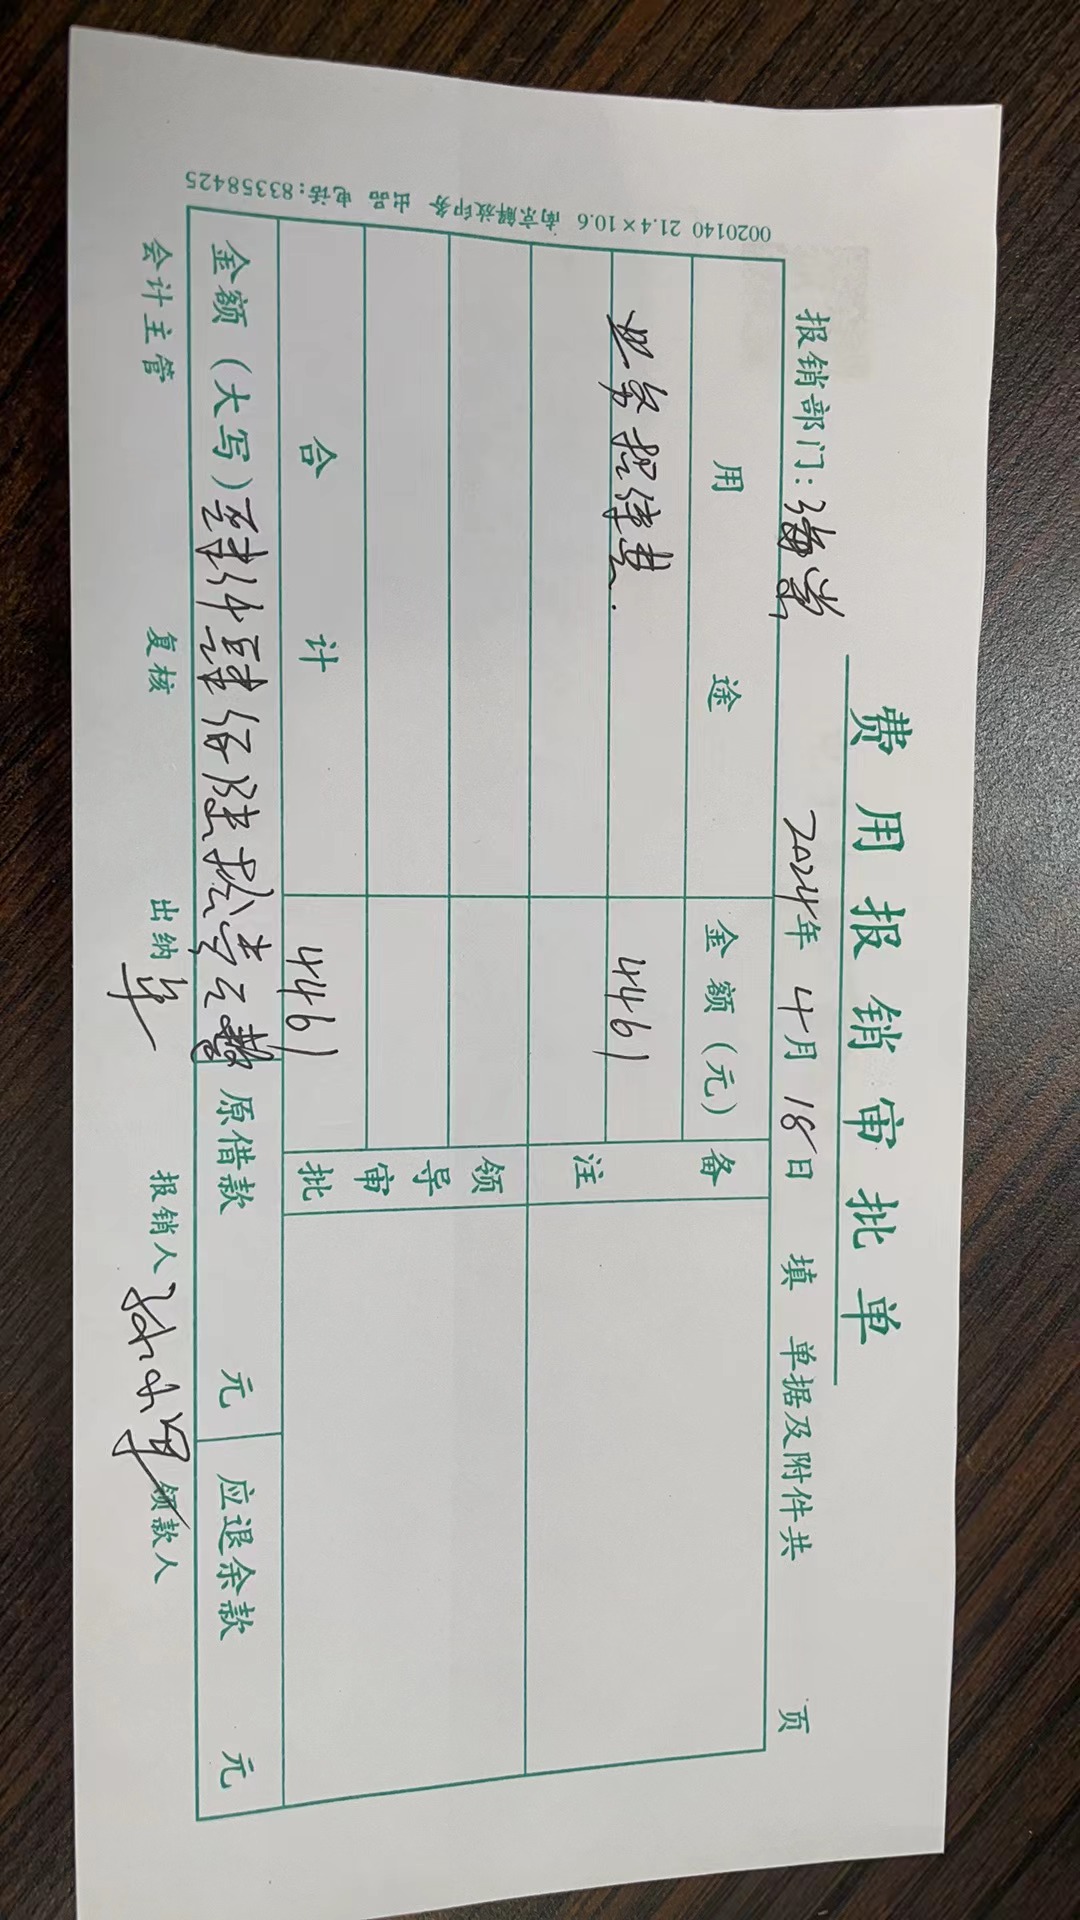 费用报销审批单
报销部门：海棠 2024年4月18日填 单据及附件共 页
用途 金额（元） 备注
业务招待费. 4461
领导审批
合计 4461
金额（大写）肆仟肆佰陆拾壹元整 原借款 元 应退余款 元
会计主管 复核 出纳 报销人 领款人
0020140 21.4×10.6 南京解放印务 出品 电话：83358425